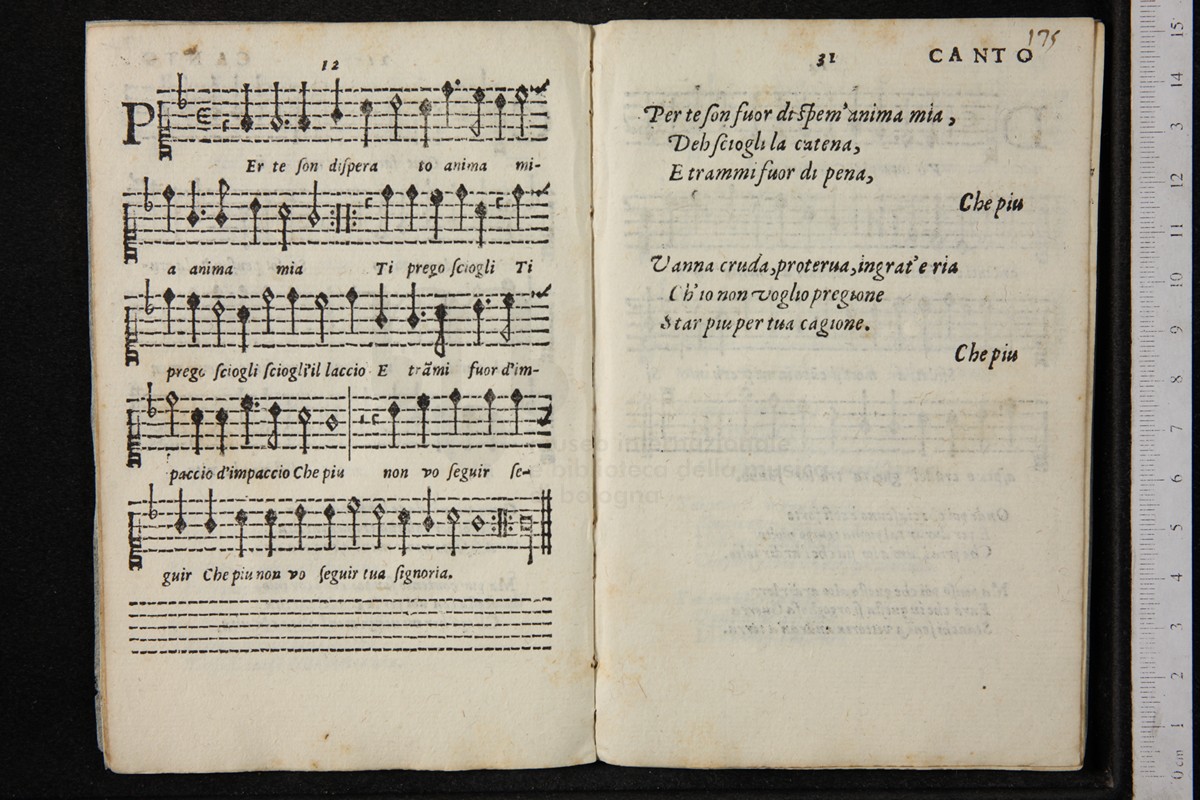 12
PEr te son dispera to anima mi-
a anima mia Ti prego sciogli Ti
prego sciogli sciogli'il laccio E trāmi fuor d'im-
paccio d'impaccio Che piu non vo seguir se-
guir Che piu non vo seguir tua signoria.
31 CANTO
175
Per te son fuor di spem' anima mia,
Deh sciogli la catena,
E trammi fuor di pena,
Che piu
Vanna cruda, proterua, ingrat' e ria
Ch'io non voglio pregione
Star piu per tua cagione.
Che piu
museo internazionale
e biblioteca della musica
bologna
0 cm 1 2 3 4 5 6 7 8 9 10 11 12 13 14 15